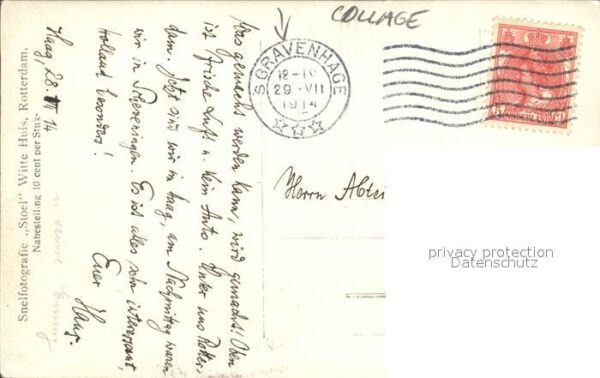 COLLAGE
'SGRAVENHAGE
12-1V
29·VII
1914
Snelfotografie „Stoel" Witte Huis, Rotterdam.
Nabestelling 10 cent per Stuk.
Haag, 28. VII 14
Was gemacht werden kann, wird gemacht! Oben
ist frische Luft u. kein Auto. Unter uns Rotter-
dam. Jetzt sind wir in Haag, am Nachmittag waren
wir in Scheveningen. Es ist alles sehr interessant,
Holland besonders!
Euer
Herrn
privacy protection
Datenschutz